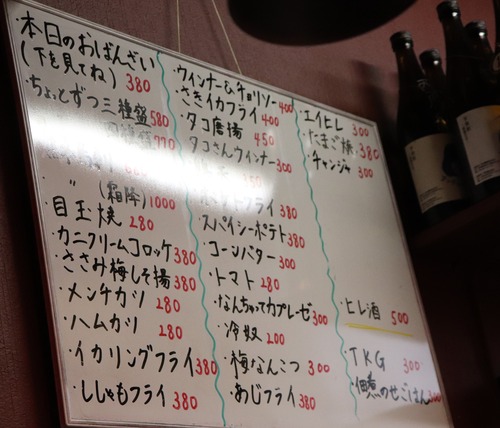 ・本日のおばんざい
(下を見てね) 380
・ちょっとずつ三種盛 580
770
〃 (霜降) 1000
・目玉焼 280
・カニクリームコロッケ 380
・ささみ梅しそ揚 380
・メンチカツ 280
・ハムカツ 280
・イカリングフライ 380
・ししゃもフライ 380
・ウィンナー&チョリソー 400
・さきイカフライ 400
・タコ唐揚 450
・タコさんウィンナー 300
ポテトフライ 380
・スパイシーポテト 380
・コーンバター 300
・トマト 280
・なんちゃってカプレーゼ 300
・冷奴 200
・梅なんこつ 300
・あじフライ 380
・エイヒレ 300
・たまご焼 380
・チャンジャ 300
・ヒレ酒 500
・TKG 300
・佃煮のせごはん 300